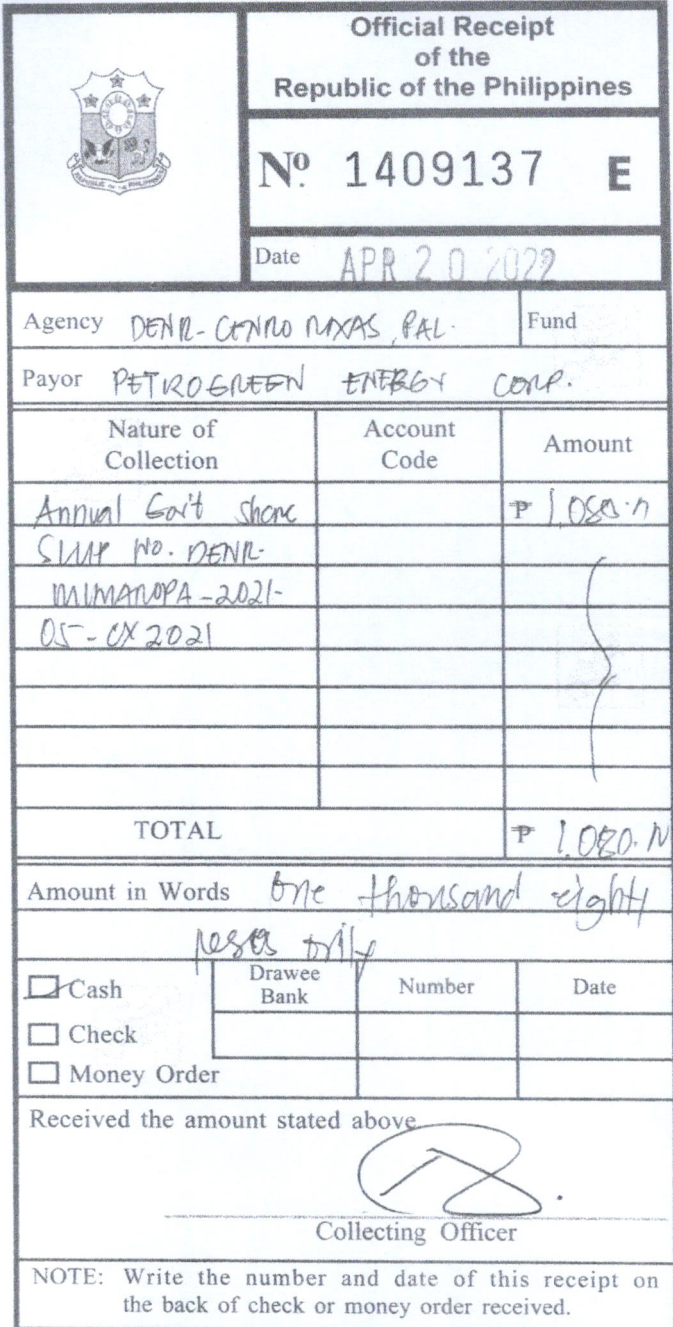 Official Receipt
of the
Republic of the Philippines
REPUBLIC OF THE PHILIPPINES
Nº 1409137 E
Date APR 20 2022
Agency DENR-CENRO ROXAS, PAL.
Fund
Payor PETROGREEN ENERGY CORP.
Nature of Collection Account Code Amount
Annual Gov't share ₱ 1,080.
No. DENR-
MIMAROPA-2021-
05- 2021
TOTAL ₱ 1,080.
Amount in Words One thousand eighty
pesos only
Cash Drawee Bank Number Date
Check
Money Order
Received the amount stated above.
Collecting Officer
NOTE: Write the number and date of this receipt on
the back of check or money order received.